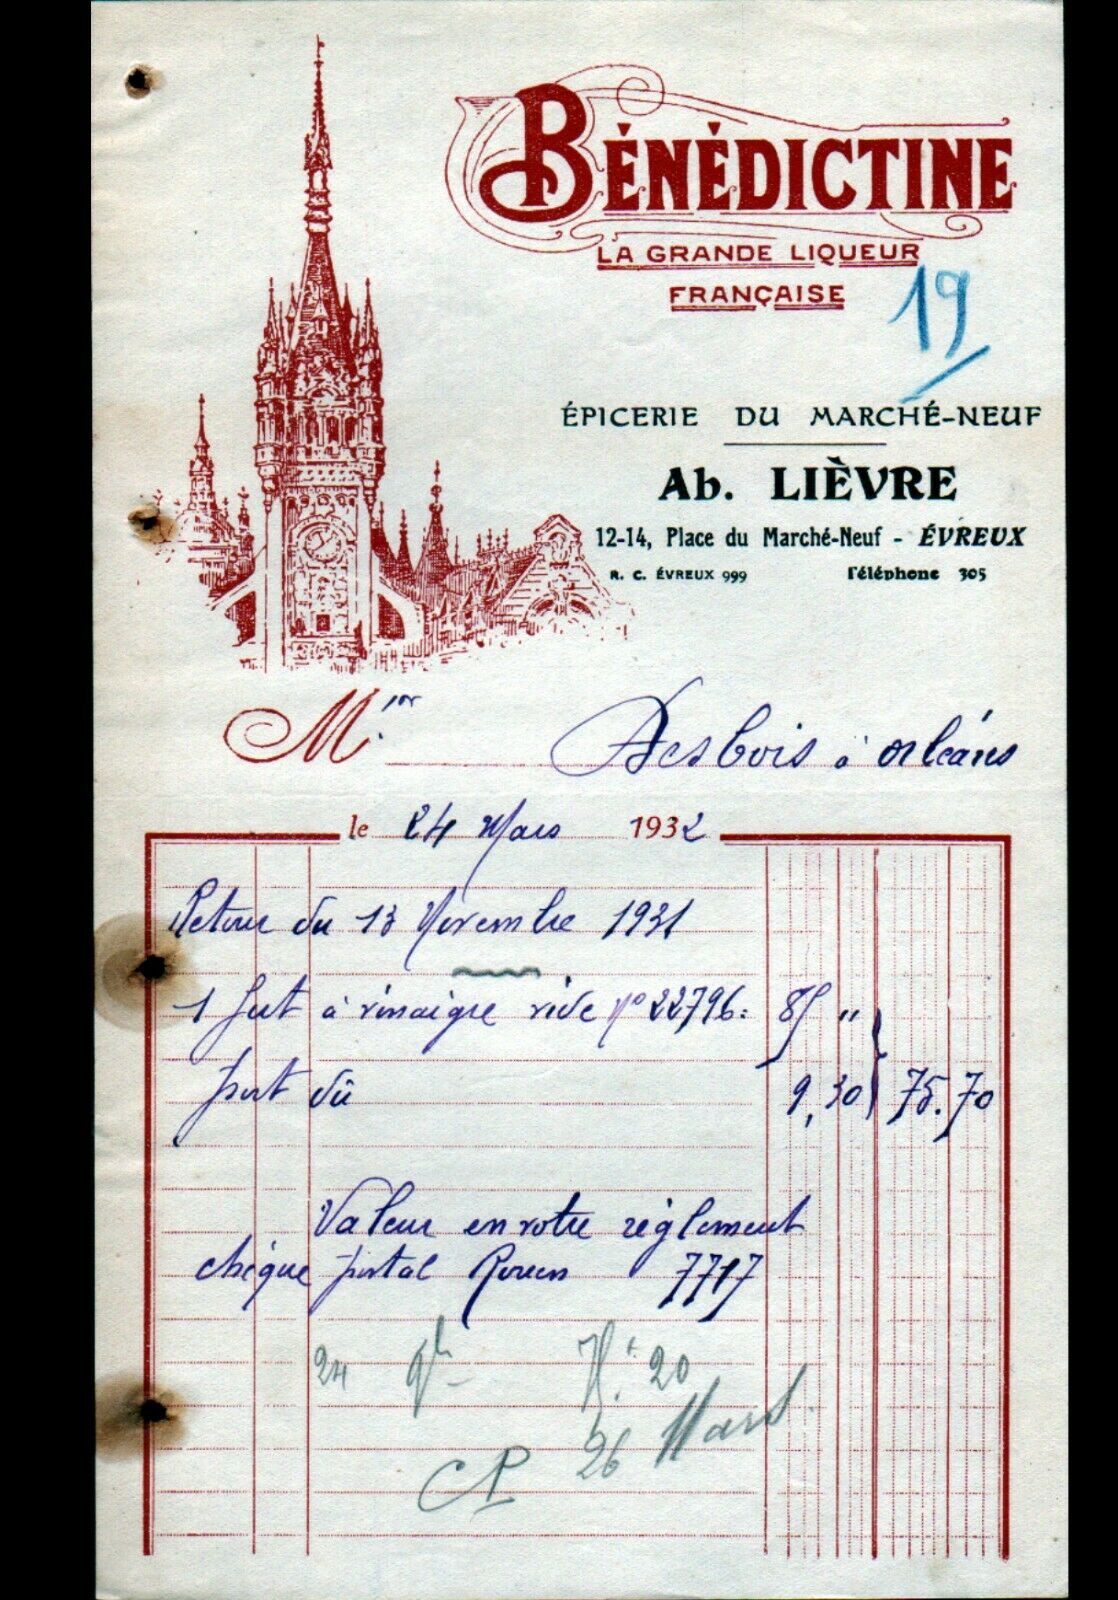 BÉNÉDICTINE
LA GRANDE LIQUEUR
FRANÇAISE
19
ÉPICERIE DU MARCHÉ-NEUF
Ab. LIÈVRE
12-14, Place du Marché-Neuf - ÉVREUX
R. C. ÉVREUX 999 Téléphone 305
M. Desbois à Orléans
le 24 Mars 1932
Retour du 13 Novembre 1931
1 fut à vinaigre vide n° 22796: 85 "
port dû 9,30 75.70
Valeur en votre règlement
chèque postal Rouen 7717
24 20
26 Mars